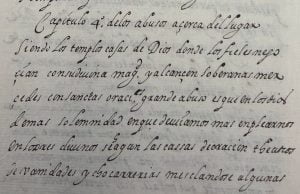 Capitulo 4º. delos abusos açerca del lugar
Siendo los templos casas de Dios donde los fieles nego
cian con su divina mag.d y alcançan soberanas mer
cedes con sanctas oraci.es grande abuso es que en los
de mas solemnidad en que deviamos mas emplearnos
en loores divinos se agan las casas de oracion theatros
de vanidades y chocarrerias mesclandose algunas